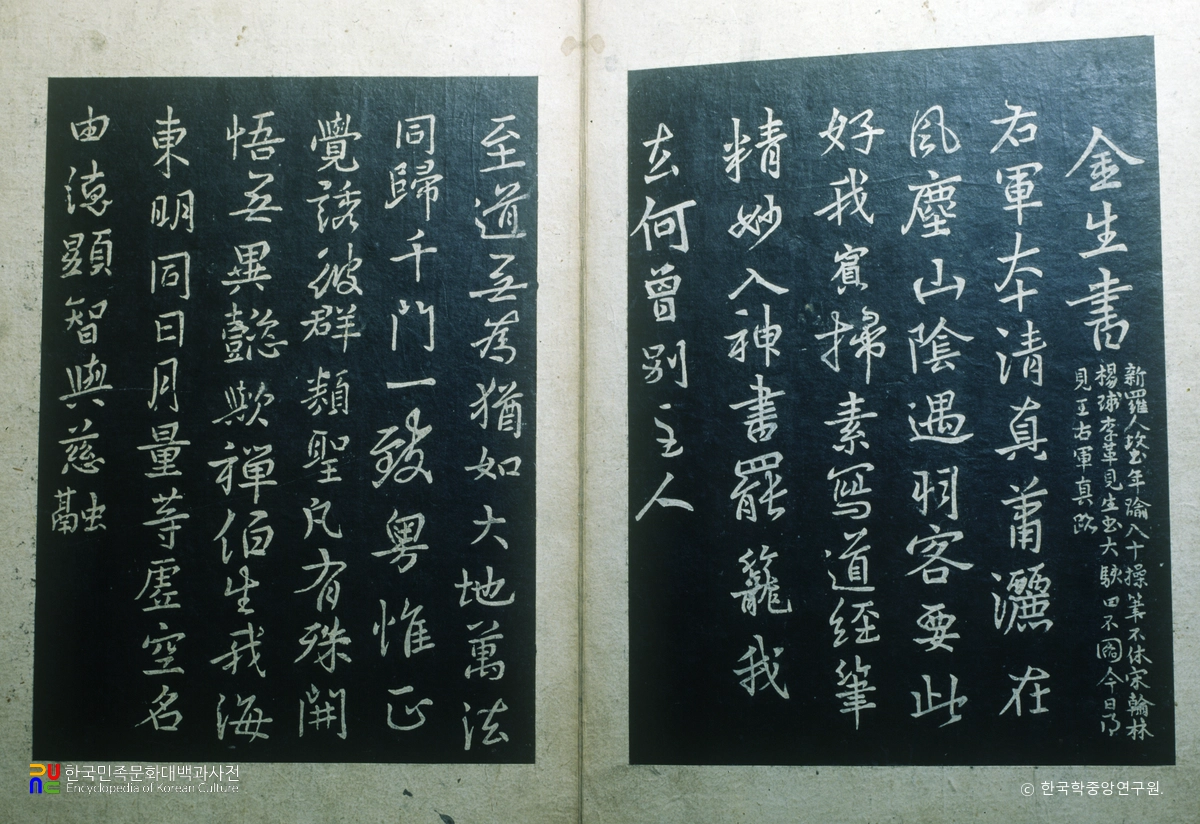 金生書
新羅人墊年踰八十操筆不休宋翰林
楊球李革見生書大駭曰不圖今日得
見王右軍真跡
右軍本清真蕭灑在
風塵山陰遇羽客要此
好我賓掃素寫道經筆
精妙入神書罷籠我
去何曾別主人
至道無為猶如大地萬法
同歸千門一致粵惟正
覺誘彼群類聖凡有殊開
悟無異懿歟禪伯生我海
東明同日月量等虛空名
由德顯智與慈融
한국민족문화대백과사전
Encyclopedia of Korean Culture
© 한국학중앙연구원.